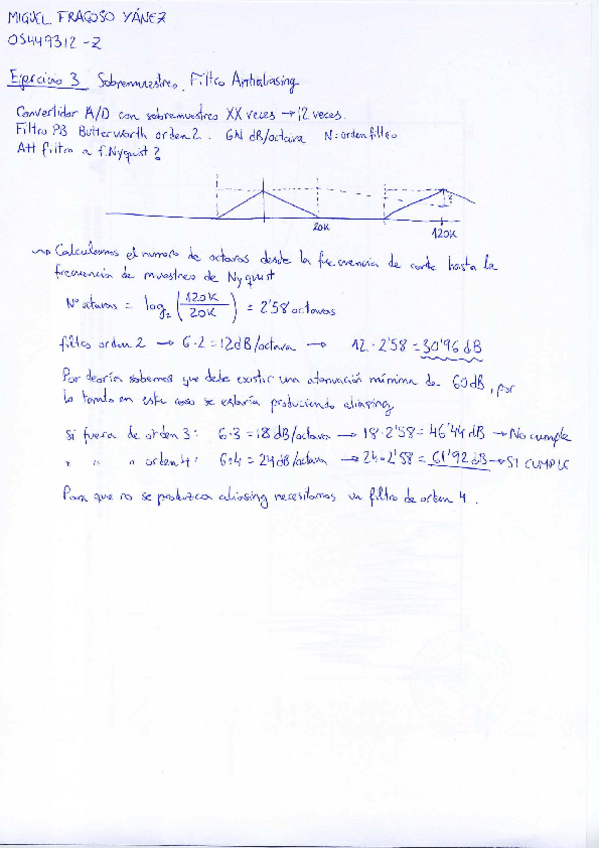 MIGUEL FRAGOSO YÁÑEZ
05449312-Z
Ejercicio 3 Sobremuestreo. Filtro Antialiasing
Convertidor A/D con sobremuestreo XX veces → 12 veces.
Filtro PB Butterworth orden 2. 6N dB/octava N: orden filtro
Att filtro a f. Nyquist?
20K
120K
Calculamos el numero de octavas desde la frecuencia de corte hasta la
frecuencia de muestreo de Nyquist
Nº octavas = log₂ (120K / 20K) = 2'58 octavas
filtro orden 2 → 6·2 = 12dB/octava → 12·2'58 = 30'96 dB
Por teoría sabemos que debe existir una atenuación mínima de 60dB, por
lo tanto en este caso se estaría produciendo aliasing
Si fuera de orden 3: 6·3 = 18 dB/octava → 18·2'58 = 46'44 dB → No cumple
" " " orden 4: 6·4 = 24dB/octava → 24·2'58 = 61'92 dB → SI CUMPLE
Para que no se produzca aliasing necesitamos un filtro de orden 4.